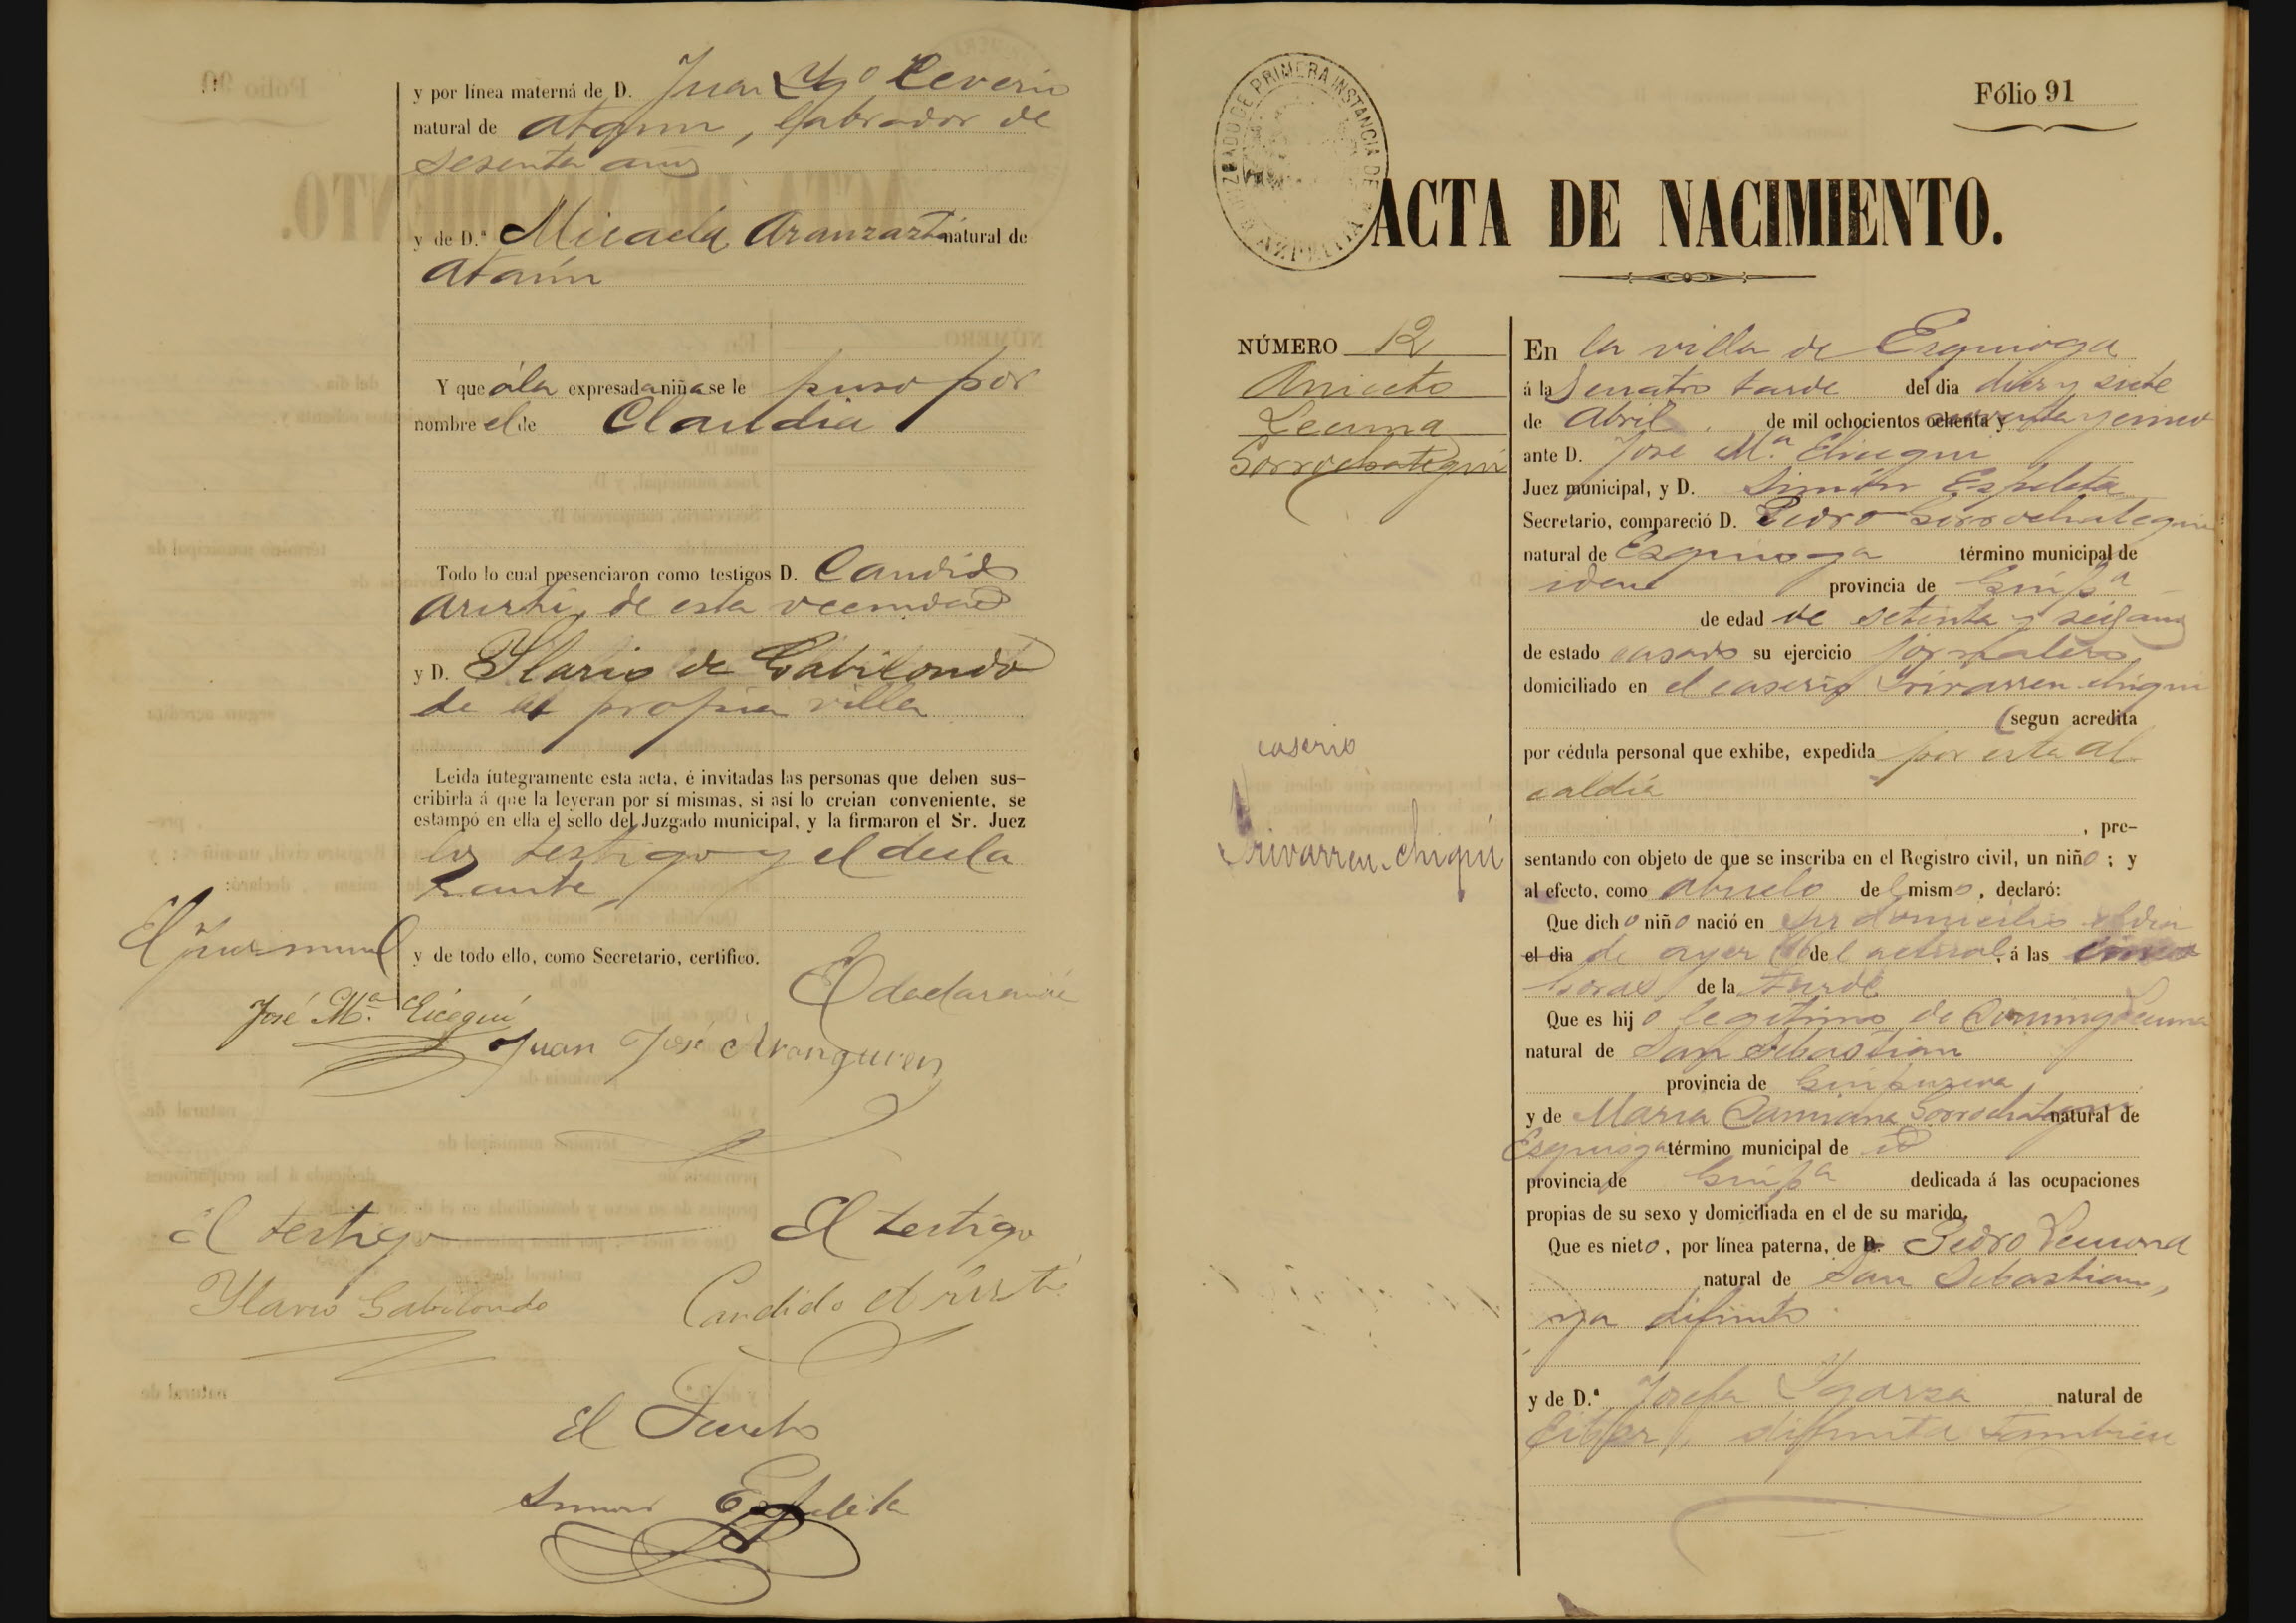 y por línea materna de D. Juan Ygº Ceverio
natural de Ataun, labrador de
sesenta años
y de D.ª Micaela Aranzazti natural de
Ataun
Y que á la expresada niña se le puso por
nombre el de Claudia
Todo lo cual presenciaron como testigos D. Candido
Aristi, de esta vecindad
y D. Ylario de Gabilondo
de la propia villa
Leida íntegramente esta acta, é invitadas las personas que deben sus-
cribirla á que la leyeran por sí mismas, si así lo creian conveniente, se
estampó en ella el sello del Juzgado municipal, y la firmaron el Sr. Juez
los testigos y el decla
rante
y de todo ello, como Secretario, certifico.
El Juez munl
El declarante
José M.ª Eicegui
Juan José Aranguren
El testigo
El testigo
Ylario Gabilondo
Candido Aristi
El Secreto
Simon Ezpeleta
JUZGADO DE PRIMERA INSTANCIA DE AZPEITIA
Fólio 91
ACTA DE NACIMIENTO.
NÚMERO 12
Aniceto
Lecuna
Sorrochategui
caserio
Irivarren-chiqui
En la villa de Ezquioga
á las cuatro tarde del dia diez y siete
de Abril de mil ochocientos ochenta y noventa y cinco
ante D. Jose M.ª Eicegui
Juez municipal, y D. Simón Ezpeleta
Secretario, compareció D. Pedro Sorrochategui
natural de Ezquioga término municipal de
idem provincia de Guipª
de edad de setenta y seis años
de estado casado su ejercicio jornalero
domiciliado en el caserio Irivarren chiqui
(segun acredita
por cédula personal que exhibe, expedida por esta al
caldía
, pre-
sentando con objeto de que se inscriba en el Registro civil, un niño; y
al efecto, como abuelo del mismo, declaró:
Que dicho niño nació en su domicilio el dia
el dia de ayer del actual, á las cinco
horas de la tarde
Que es hijo legitimo de Domingo Lecuna
natural de San Sebastian
provincia de Guipuzcoa
y de Maria Damiana Sorrochategui natural de
Ezquioga término municipal de id
provincia de Guipª dedicada á las ocupaciones
propias de su sexo y domiciliada en el de su marido.
Que es nieto, por línea paterna, de D. Pedro Lecuona
natural de San Sebastian,
ya difunto
y de D.ª Josefa Ygarza natural de
Eibar, difunta tambien